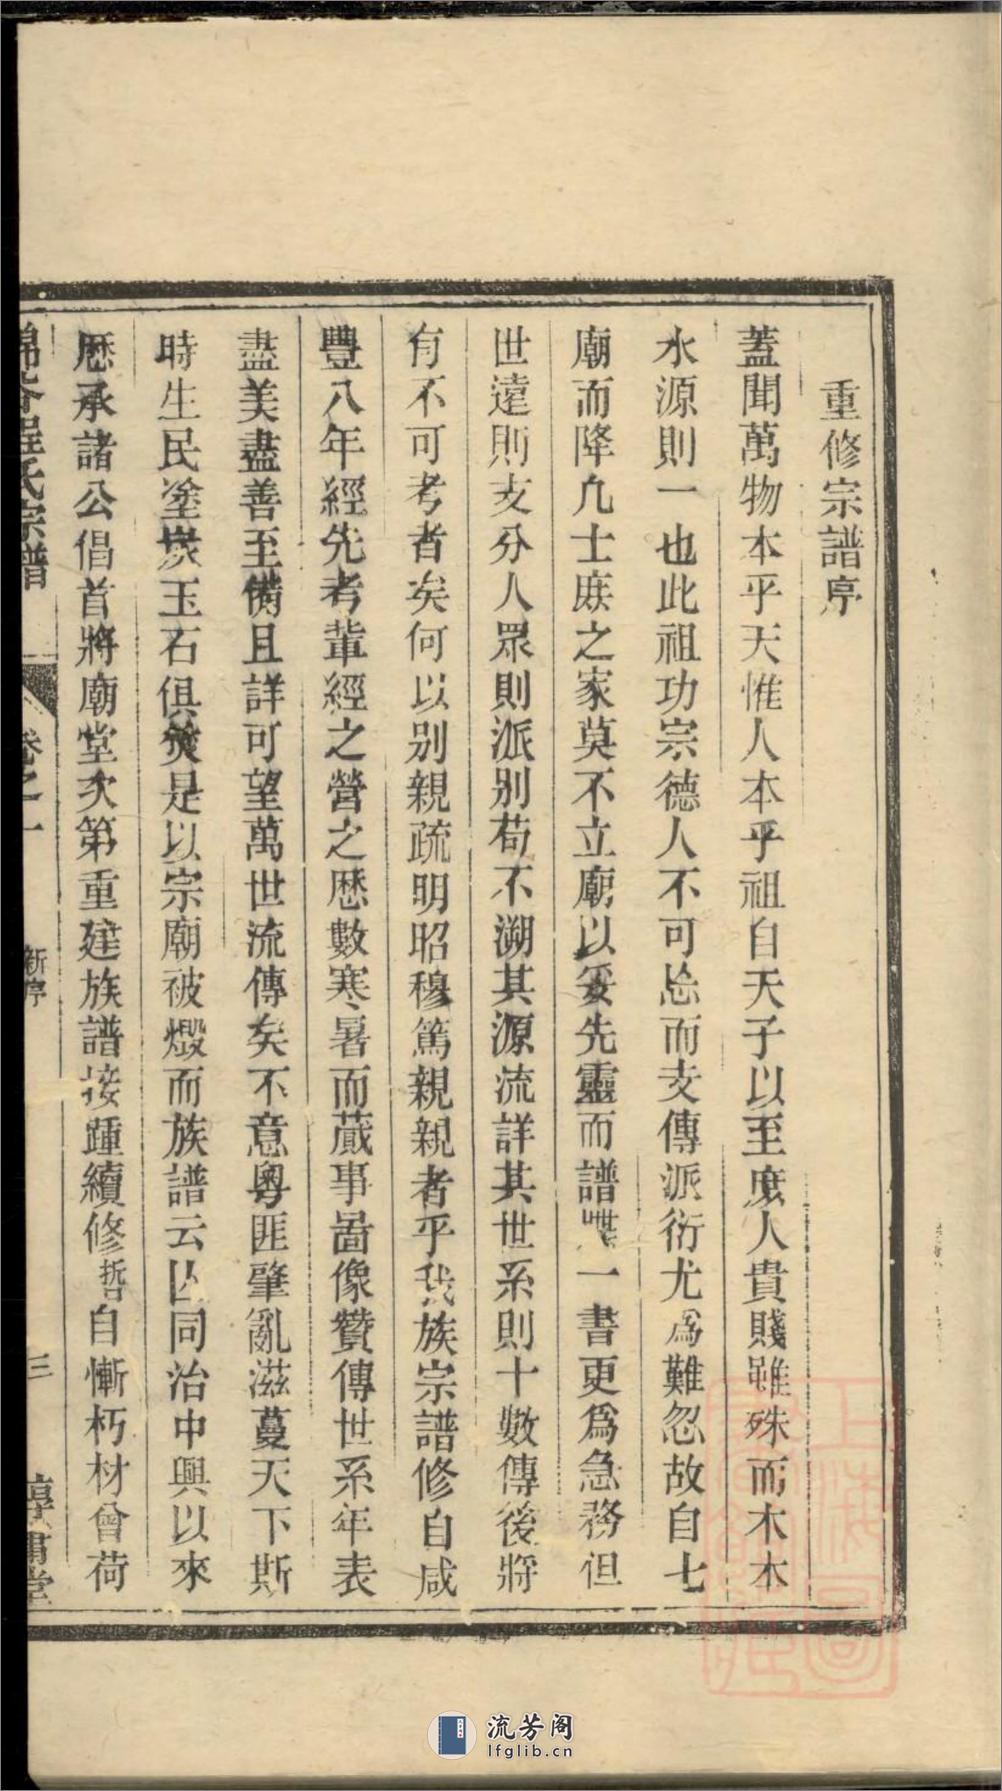 重修宗譜序
蓋聞萬物本乎天惟人本乎祖自天子以至庶人貴賤雖殊而木木
水源則一也此祖功宗德人不可忘而支傳派衍尤為難忽故自七
廟而降凢士庶之家莫不立廟以妥先靈而譜牒一書更為急務但
世遠則支分人眾則派別苟不溯其源流詳其世系則十數傳後將
有不可考者矣何以別親疏明昭穆篤親親者乎我族宗譜修自咸
豐八年經先考輩經之營之歷數寒暑而蕆事啚像贊傳世系年表
盡美盡善至備且詳可望萬世流傳矣不意粵匪肇亂滋蔓天下斯
時生民塗炭玉石俱焚是以宗廟被燬而族譜云亾同治中興以來
歷承諸公倡首將廟堂次第重建族譜接踵續修哲自慚朽材曾荷
程氏宗譜
卷之一
新序
三
淳肅堂
上海圖
流芳阁
lfglib.cn